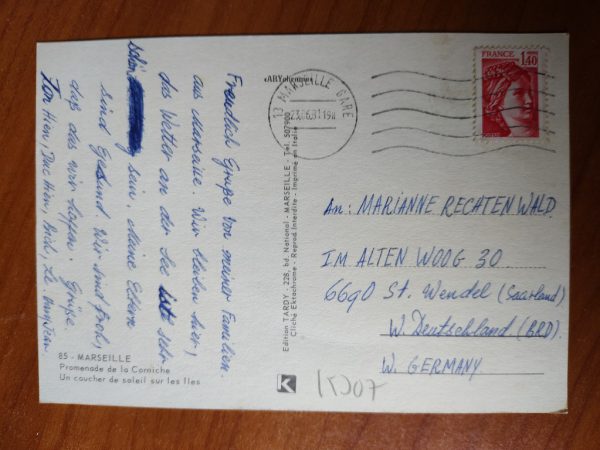 Freudlich Grüße von meiner Familien.
aus Marseille. Wir bleiben hier,
das Wetter an der See ist sehr
schön sein, meine Eltern
sind Gesund. Wir sind froh,
daß das wir hoffen. Grüße.
Hien, Duc Hien, Le
85 - MARSEILLE
Promenade de la Corniche
Un coucher de soleil sur les Iles
Edition TARDY - 228, bd. National - MARSEILLE - Tél. 507900
Cliché Ektachrome - Reprod. Interdite - Imprimé en Italie
K
13 MARSEILLE GARE
FRANCE
1,40
An: MARIANNE RECHTENWALD
IM ALTEN WOOG 30.
6690 St. Wendel (Saarland)
W. Deutschland (BRD).
W. GERMANY